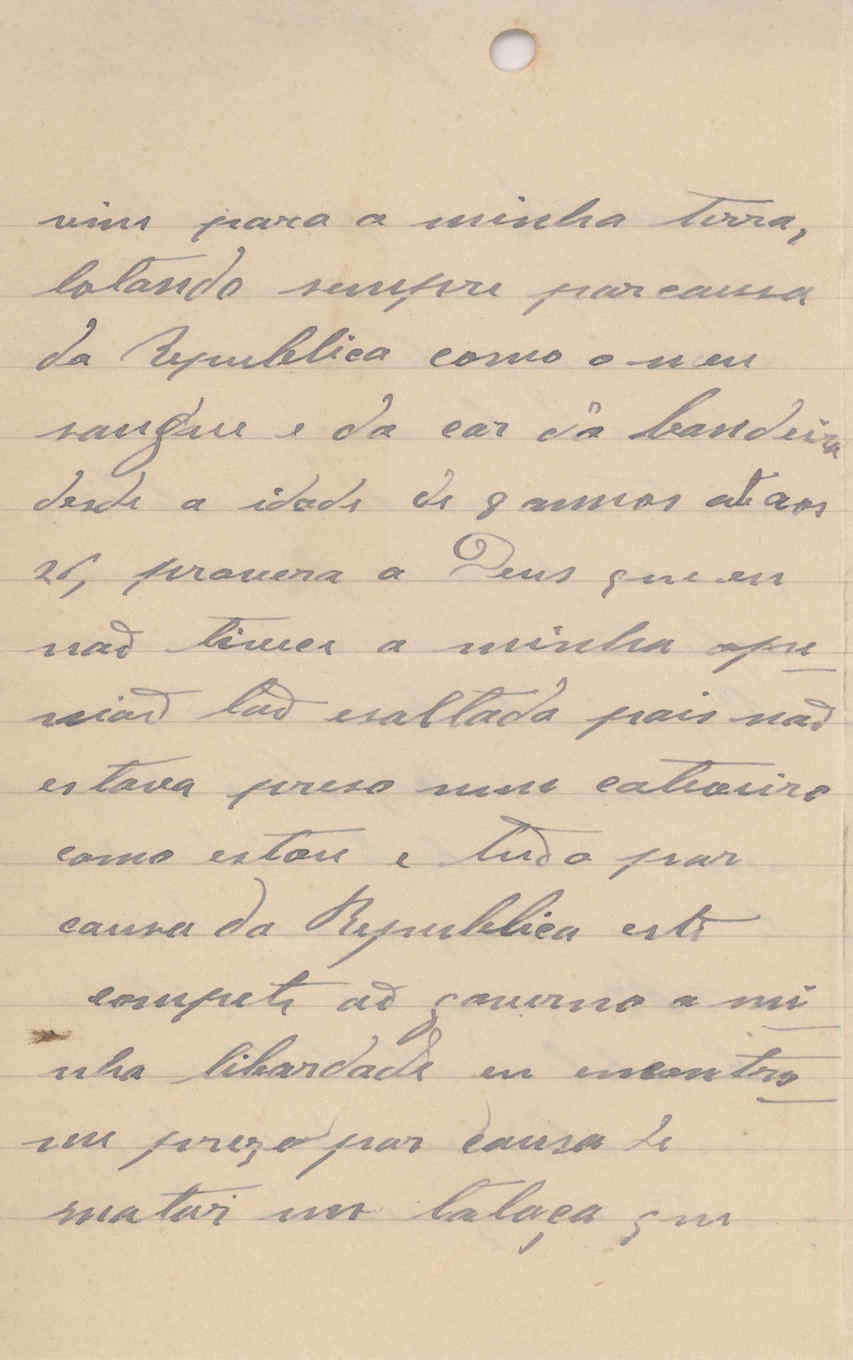 vim para a minha terra,
lotando sempre por causa
da Republica como o meu
sangue e da cor da bandeira
desde a idade de 9 annos até aos
26, provera a Deus que eu
naõ tivece a minha opi
niaõ taõ esaltada pois naõ
estava preso num cativeiro
como estou e tudo por
causa da Republica esta
compete aõ governo a mi
nha libardade eu encontro
me prezo por causa de
matar um talaça que